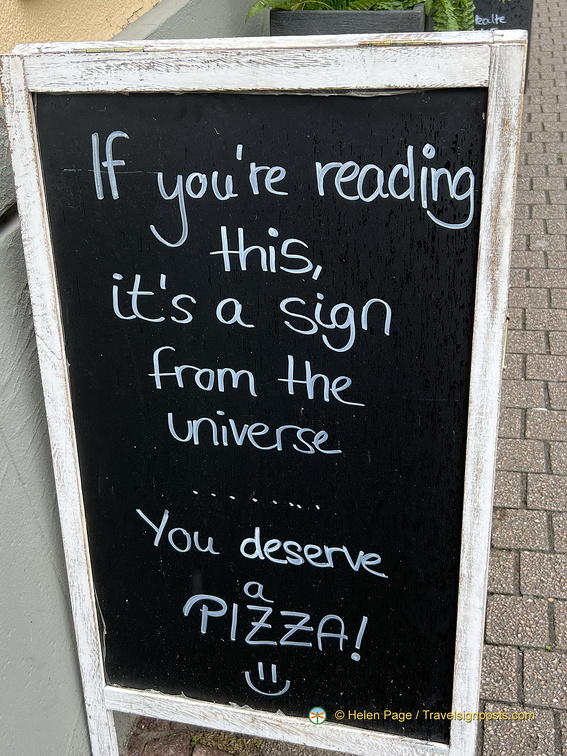 ealte
If you're reading
this,
it's a sign
from the
universe
.........
You deserve
a
PIZZA!
© Helen Page / Travelsignposts.com